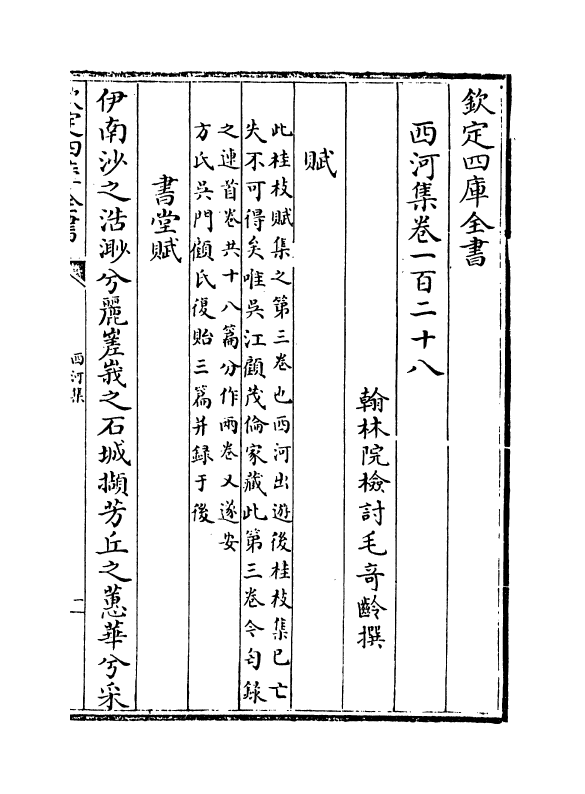 欽定四庫全書
西河集卷一百二十八
翰林院檢討毛奇齡撰
賦
此桂枝賦集之第三卷也西河出遊後桂枝集已亡
失不可得矣唯吳江顧茂倫家藏此第三卷今匄錄
之連首卷共十八篇分作兩卷又遂安
方氏吳門顧氏復貽三篇并録于後
書堂賦
伊南沙之浩渺兮麗嵳峩之石城擷芳丘之蕙華兮采
欽定四庫全書
西河集